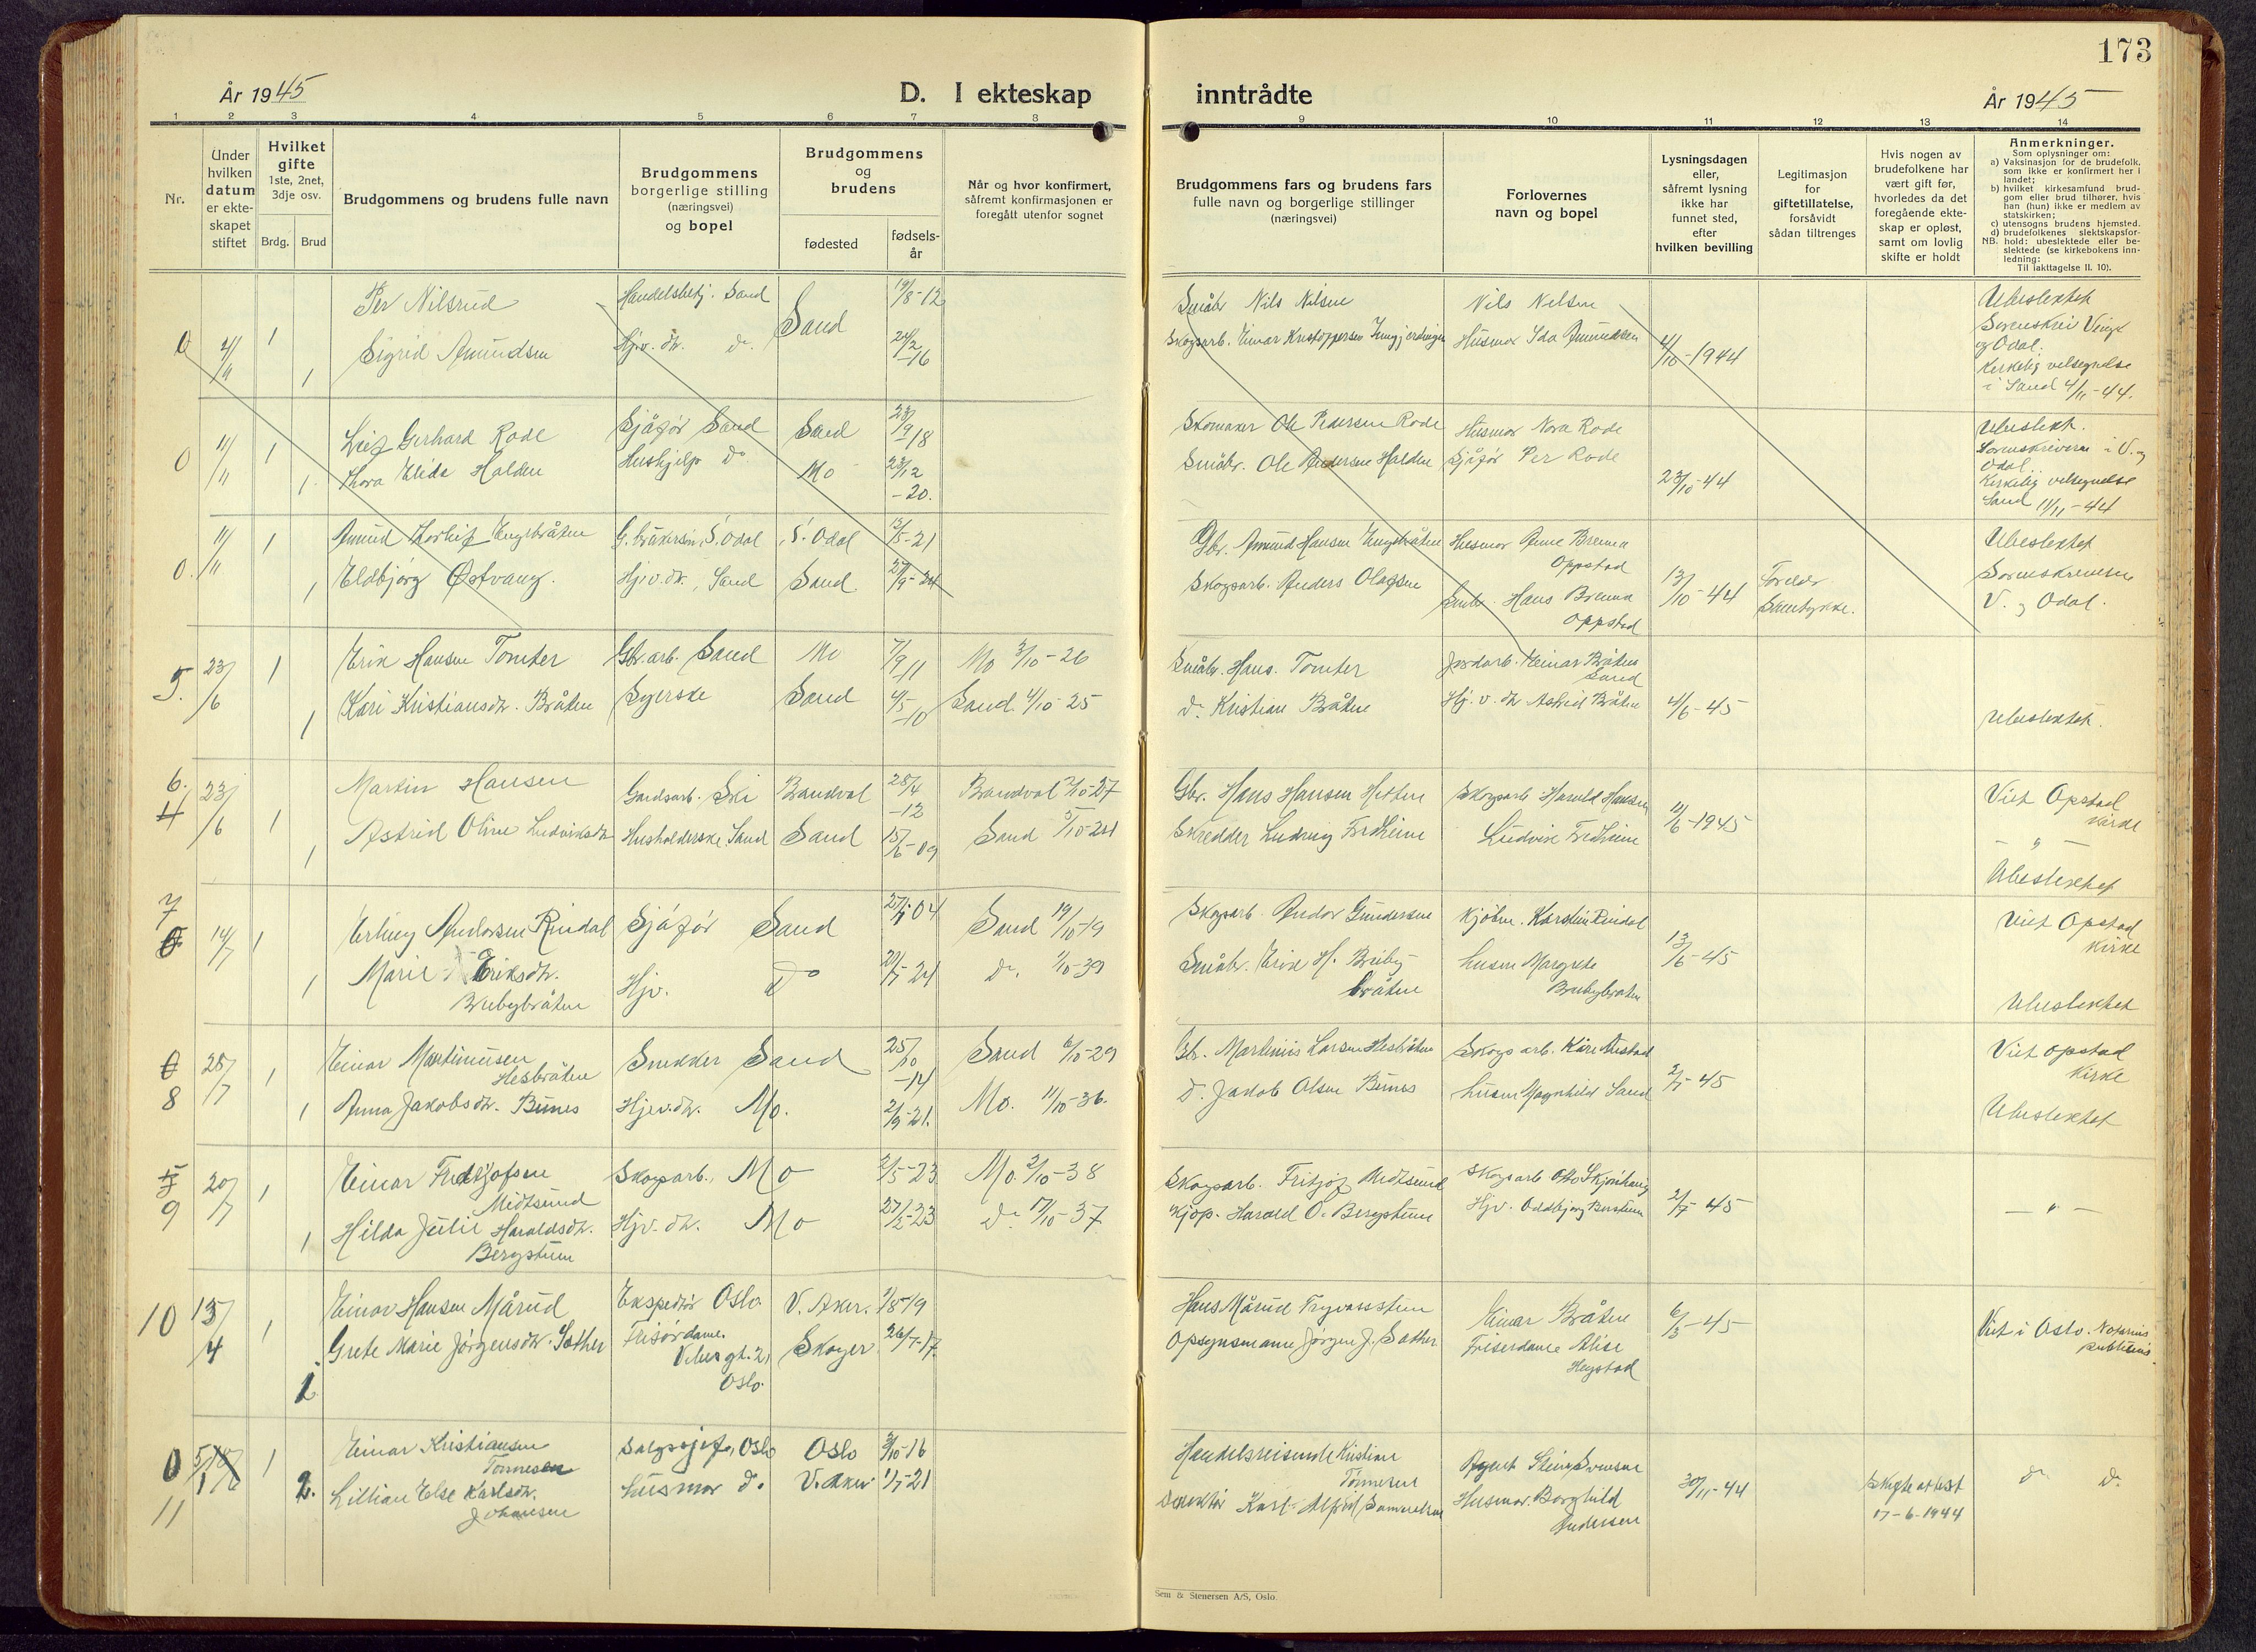 173
År 1945
D. I ekteskap
inntrådte
År 1945
1 2 3 4 5 6 7 8 9 10 11 12 13 14
Nr.
Under
hvilken
datum
er ekte-
skapet
stiftet
Hvilket
gifte
1ste, 2net,
3dje osv.
Brdg. Brud
Brudgommens og brudens fulle navn
Brudgommens
borgerlige stilling
(næringsvei)
og bopel
Brudgommens
og
brudens
fødested
fødsels-
år
Når og hvor konfirmert,
såfremt konfirmasjonen er
foregått utenfor sognet
Brudgommens fars og brudens fars
fulle navn og borgerlige stillinger
(næringsvei)
Forlovernes
navn og bopel
Lysningsdagen
eller,
såfremt lysning
ikke har
funnet sted,
efter
hvilken bevilling
Legitimasjon
for
giftetillatelse,
forsåvidt
sådan tiltrenges
Hvis nogen av
brudefolkene har
vært gift før,
hvorledes da det
foregående ekte-
skap er opløst,
samt om lovlig
skifte er holdt
Anmerkninger.
Som oplysninger om:
a) Vaksinasjon for de brudefolk,
som ikke er konfirmert her i
landet;
b) hvilket kirkesamfund brud-
gom eller brud tilhører, hvis
han (hun) ikke er medlem av
statskirken;
c) utensogns brudens hjemsted.
d) brudefolkenes slektskapsfor-
NB. hold: ubeslektede eller be-
slektede (se kirkebokens inn-
ledning:
Til iakttagelse II. 10).
0 4/11 1 Per Nilsrud Handelsbetj. Sand Sand 19/8-12 Småbr. Nils Nilsen Nils Nilsen 4/10-1944 Ubeslektet
1 Sigrid Amundsen Hj.v. dr. do. 24/2-16 Skogsarb. Einar Kristoffersen Husmor Ida Amundsen Sorenskri Vinge
og Odal.
Kirkelig velsignelse
i Sand 4/11-44.
0 11/11 1 Leif Gerhard Rode Sjåfør Sand Sand 18 Skomaker Ole Pedersen Rode Husmor Nora Rode 23/10-44 Ubeslekt.
1 Thora Elida Halden Hushjelp do Mo 23/12-20. Småbr. Ole Andersen Halden Sjåfør Per Rode Sorenskriveren i V. og
Odal.
Kirkelig velsignelse
Sand 11/11-44
0. 11/11 1 Amund Torleif Engebråten G.brukersøn, S. Odal S. Odal 21 Gbr. Amund Hansen Husmor Anne Brenna
Oppstad 13/10-44 Ubeslektet
1 Eldbjørg Østvang. Hj.v.dr., Sand Sand 27/9-24 Skogsarb. Anders Olafsen Hans Brenna
Oppstad Sorenskriveren
V. og Odal.
5. 23/6 1 Erik Hansen Tomter Gbr.arb. Sand Mo 7/9 11 Mo 3/10-26 Småbr. Hans. Tomter Jordarb. Einar Bråten
Sand
1 Kari Kristiansdr. Bråten Syerske Sand 4/5-10 Sand 4/10-25 do. Kristian Bråten Hj. v. dr. Astrid Bråten 4/6-45 Ubeslektet.
6. 4 23/6 1 Martin Hansen Gardsarb. Ski Brandval 28/4-12 Brandval 2/10-27 Gbr. Hans Hansen Skogsarb Harald Hansen 11/6-1945 Viet Opstad
kirke
1 Astrid Oline Ludviksdr Husholderske Sand Sand 15/6-09 Sand 5/10-24 Skredder Ludvig Fredheim Ludvik Fredheim — " —
Ubeslektet
7 14/7 1 Erling Andersen Rindal Sjåfør Sand 04 Sand 19/10-19 Skogsarb. Andor Gundersen Kjøbm. Karsten Rindal 13/6-45 Viet Opstad
kirke
1 Marie Eriksdr.
Brubybråten Hjv. do 24 do. 1/10-39 Småbr. Erik H. Bruby-
bråten Husm Margrete
Brubybråten Ubeslektet
8 25/7 1 Einar Martinusen
Hesbråten Snekker Sand 25/10-14 Sand 6/10-29 Gbr. Martinus Larsen Hesbråten Skogsarb. Kåre 2/7-45 Viet Opstad
Kirke
1 Anna Jakobsdr. Bunes Hjev.dr. Mo. 2/9-21. Mo. 11/10-36. Do. Jakob Olsen Bunes Husm Magnhild Sand Ubeslektet
9 20/7 1 Einar Fridtjofsen
Midtsund Skogsarb. Mo 2/5-23 Mo. 2/10-38 Skogsarb. Fritjof Midtsund Skogsarb Otto 2/7-45 — " —
1 Hilda Julie Haraldsdr.
Bergstun Hjv. dr. Mo 27/2-23 do. 17/10-37 Kjøp. Harald O. Bergstun Hjv. Oddbjørg Bergstun
10 13/4 1 Einar Hansen Mårud Ekspeditør Oslo V. Aker. 19 Hans Mårud Einar Bråten 6/3-45 Viet i Oslo. Notarius
publicus.
1 Grete Marie Jørgensdr. Sæther Frisørdame.
Oslo. Skoger 26/7-17. Opsynsmann Jørgen J. Sæther Friserdame Alise
0 11 1 Einar Kristiansen
Tønnesen Salgssjef, Oslo Oslo 3/10-16 Handelsreisende Kristian
Tønnesen Agent 30/11-44 Skifteattest
17-6-1944 do. do.
2. Lillian Else Karlsdr.
Johansen Husmor do. V. Aker 1/7-21 Direktør Karl Alfred Husmor. Borghild
Andersen
Sem & Stenersen A/S, Oslo.